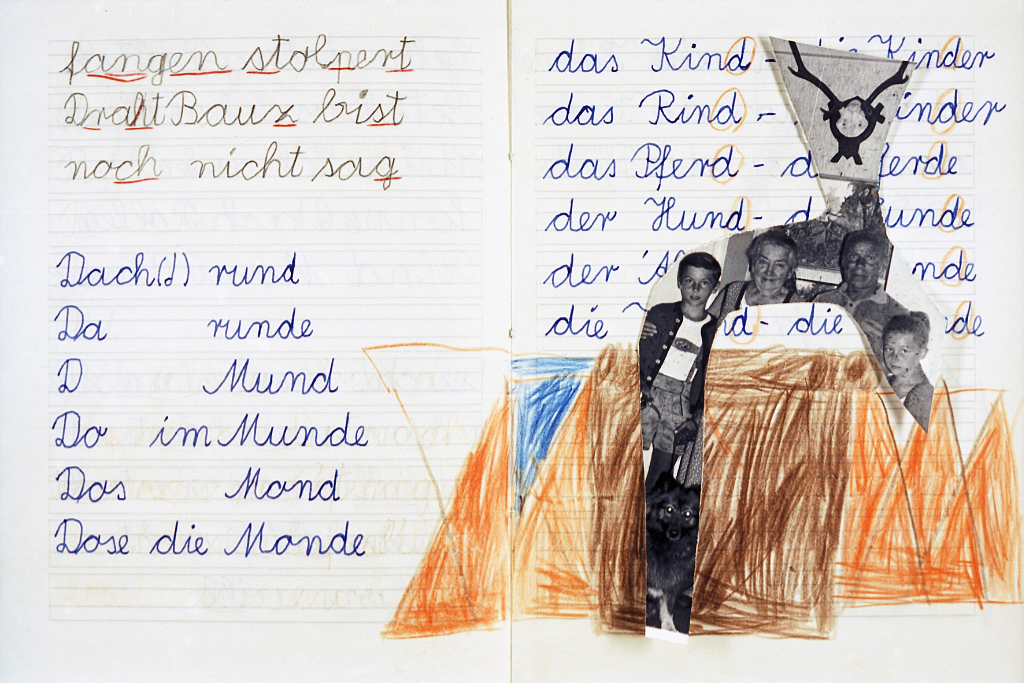 fangen stolpert
Draht Bauz bist
noch nicht sag
Dach(J) rund
Da runde
D Mund
Do im Munde
Das Mond
Dose die Monde
das Kind - die Kinder
das Rind - inder
das Pferd - d ferde
der Hund - d unde
der nde
die nd - die de